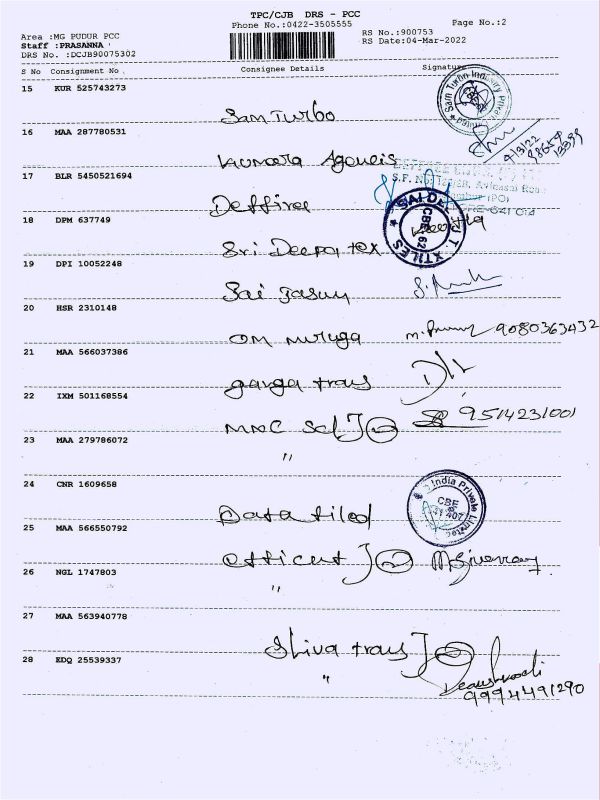 TPC/CJB DRS - PCC
Phone No.:0422-3505555 Page No.:2
Area :MG PUDUR PCC RS No.:900753
Staff :PRASANNA RS Date:04-Mar-2022
DRS No. :DCJB90075302
S No Consignment No Consignee Details Signature
15 KUR 525743273
Sam Turbo
Sam Turbo Industry Private Limited
4/3/22
16 MAA 287780531
Kumara Agencies
17 BLR 5450521694
S.F. No Avinashi Road
(PO)
Deffiree
18 DPM 637749
CBE 62
Sri Deepa tex
19 DPI 10052248
Sai
20 HSR 2310148
OM muruga 9080363432
21 MAA 566037386
ganga trans
22 IXM 501168554
MMC 9514231001
23 MAA 279786072
"
24 CNR 1609658
India Private Limited
CBE
Data tiled
25 MAA 566550792
efficent
26 NGL 1747803
"
27 MAA 563940778
Shiva trans
28 EDQ 25539337
"
9994491290